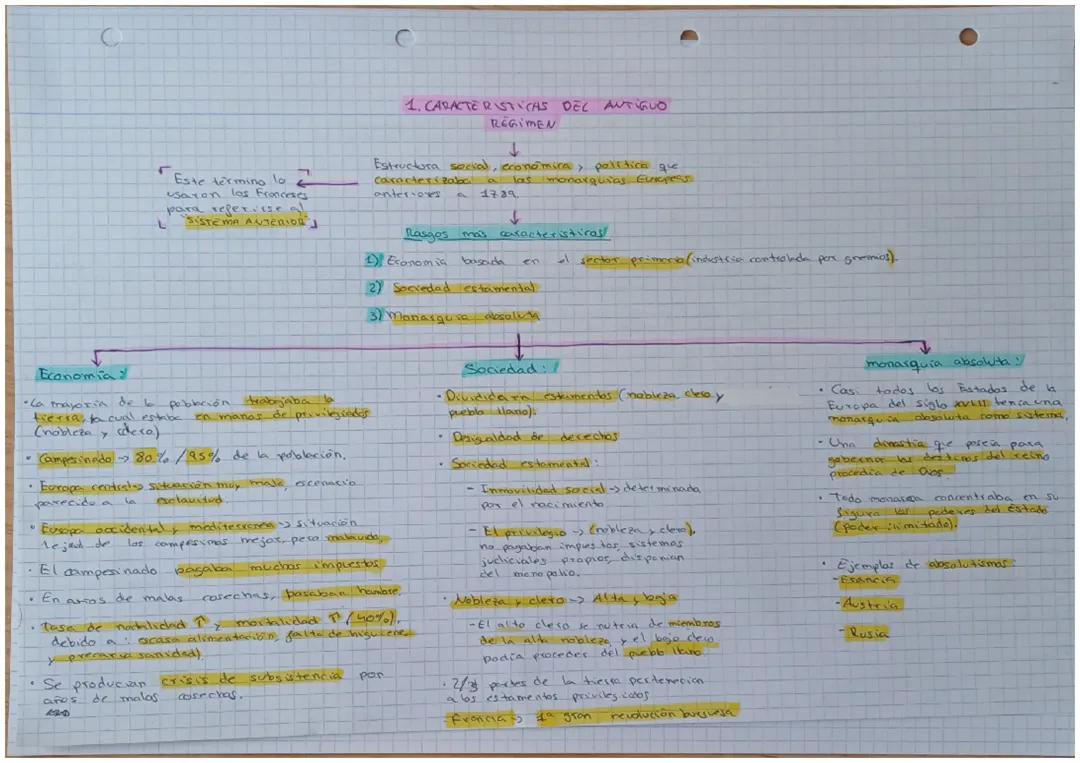 1. CARACTERISTICAS DEL ANTIGUO
RÉGIMEN
Estructura social, económica y política que
caracterizaba a las monarquías Europeas
anteriores a 1789.
Este término lo
usaron los Franceses
para referirse al
"SISTEMA ANTERIOR"
Rasgos más característicos
1) Economía basada en el sector primario (industria controlada por gremios).
2) Sociedad estamental
3) Monarquía absoluta
Economía:
• La mayoría de la población trabajaba la
tierra, la cual estaba en manos de privilegiados
(nobleza y clero)
• Campesinado → 80% / 95% de la población.
• Europa central → situación muy mala, escenario
parecido a la esclavitud.
• Europa occidental y mediterranea → situación
de los campesinos mejor, pero malavida.
• El campesinado pagaba muchos impuestos
• En años de malas cosechas, pasaban hambre
• Tasa de natalidad ↑ y mortalidad ↑ (40%),
debido a: escasa alimentación, falta de higuiene
y precaria sanidad).
• Se producian crisis de subsistencia por
años de malas cosechas.
Sociedad:
• Dividida en estamentos (nobleza clero y
pueblo llano).
• Desigualdad de derechos
• Sociedad estamental:
- Inmovilidad social → determinada
por el nacimiento
- El privilegio → (nobleza y clero),
no pagaban impuestos sistemas
judiciales propios, disponian
del monopolio.
• Nobleza y clero → Alta y baja
- El alto clero se nutria de miembros
de la alta nobleza y el bajo clero
podía proceder del pueblo llano.
• 2/3 partes de la tierra pertenecian
a los estamentos privilegiados
Francia → 1ª gran revolución burguesa
monarquía absoluta:
• Casi todos los Estados de la
Europa del siglo XVIII tenca una
monarquía absoluta como sistema.
• Una dinastía que poseía para
gobernar los destinos del reino
procedía de Dios.
• Todo monarca concentraba en su
figura los poderes del estado
(poder ilimitado).
• Ejemplos de absolutismos:
- Francia
- Austria
- Rusia